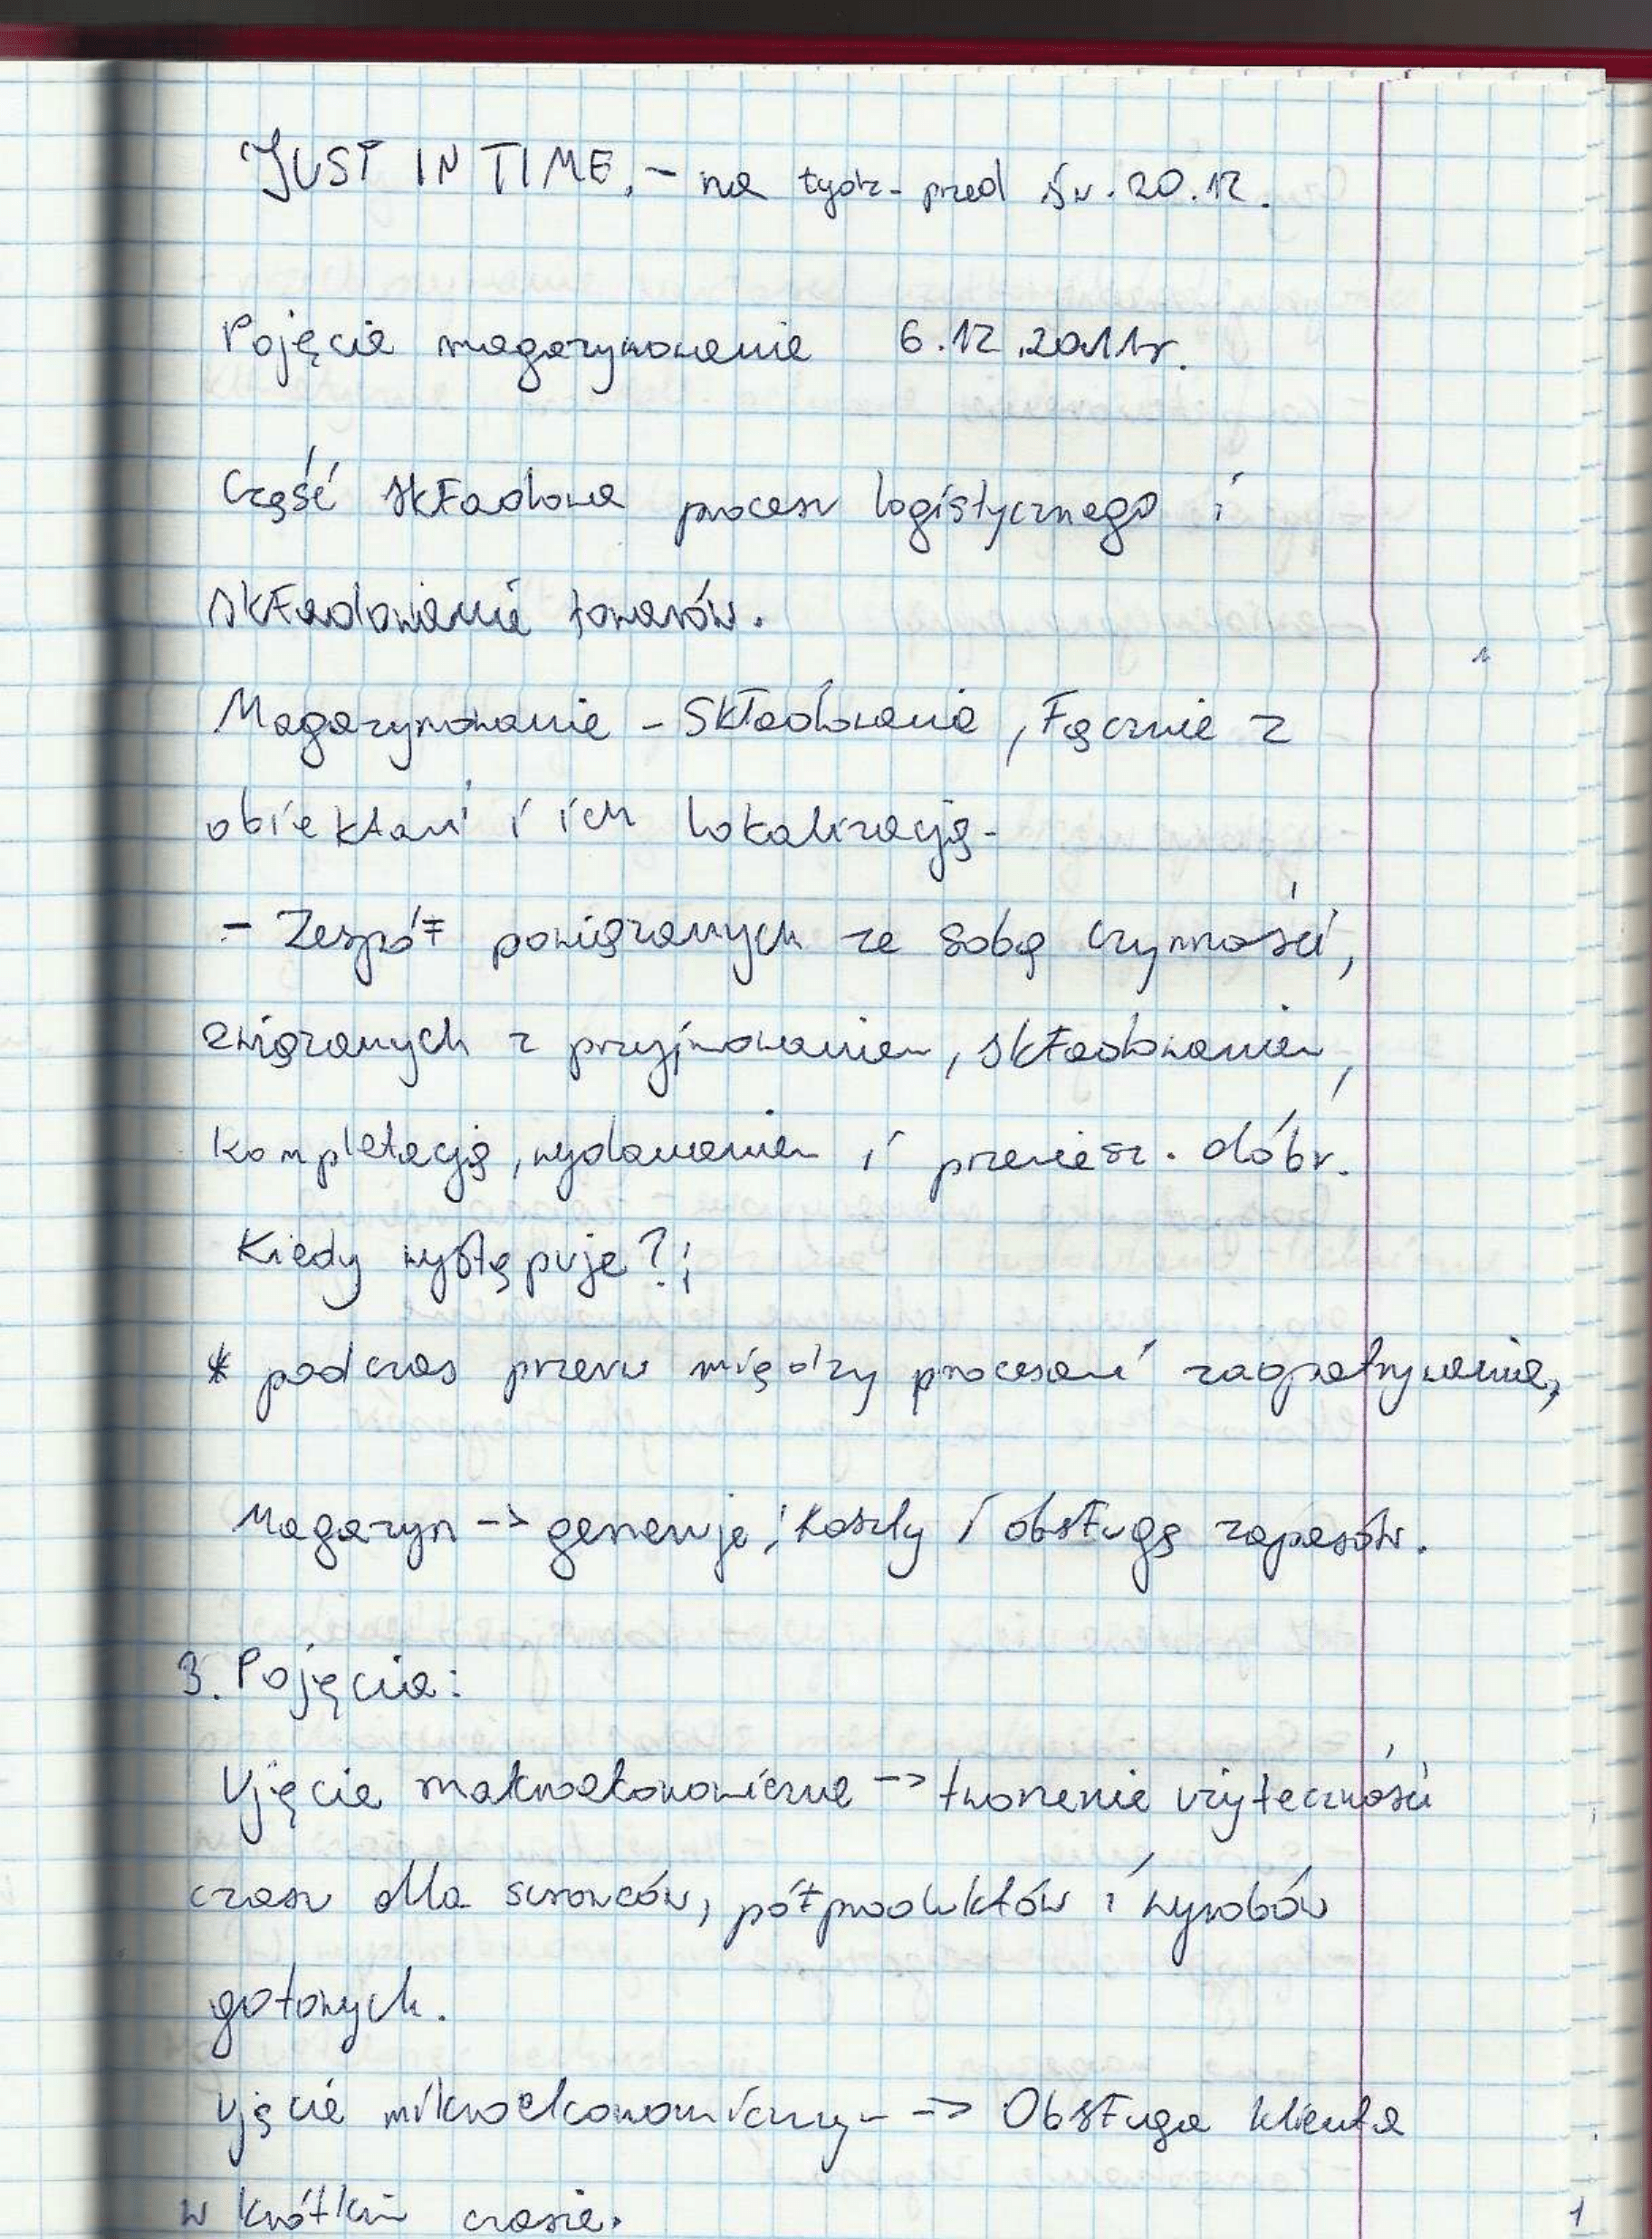 JUST IN TIME. - na tydz- przed Św. 20.12.
Pojęcie magazynowania 6.12.2011r.
Część składowa procesu logistycznego i
składowanie towarów.
Magazynowanie - Składowanie, łącznie z
obiektami i ich lokalizacją-
- Zespół powiązanych ze sobą czynności,
związanych z przyjmowaniem, składowaniem,
kompletacją, wydawaniem i przeniesz. dóbr.
Kiedy występuje?;
* podczas przerw między procesami zaopatrywania,
Magazyn -> generuje; koszty i obsługę zapasów.
3. Pojęcia:
Ujęcie makroekonomiczne -> tworzenie użyteczności
czasu dla surowców, półproduktów i wyrobów
gotowych.
Ujęcie mikroekonomiczny- -> Obsługa klienta
w krótkim czasie.
1